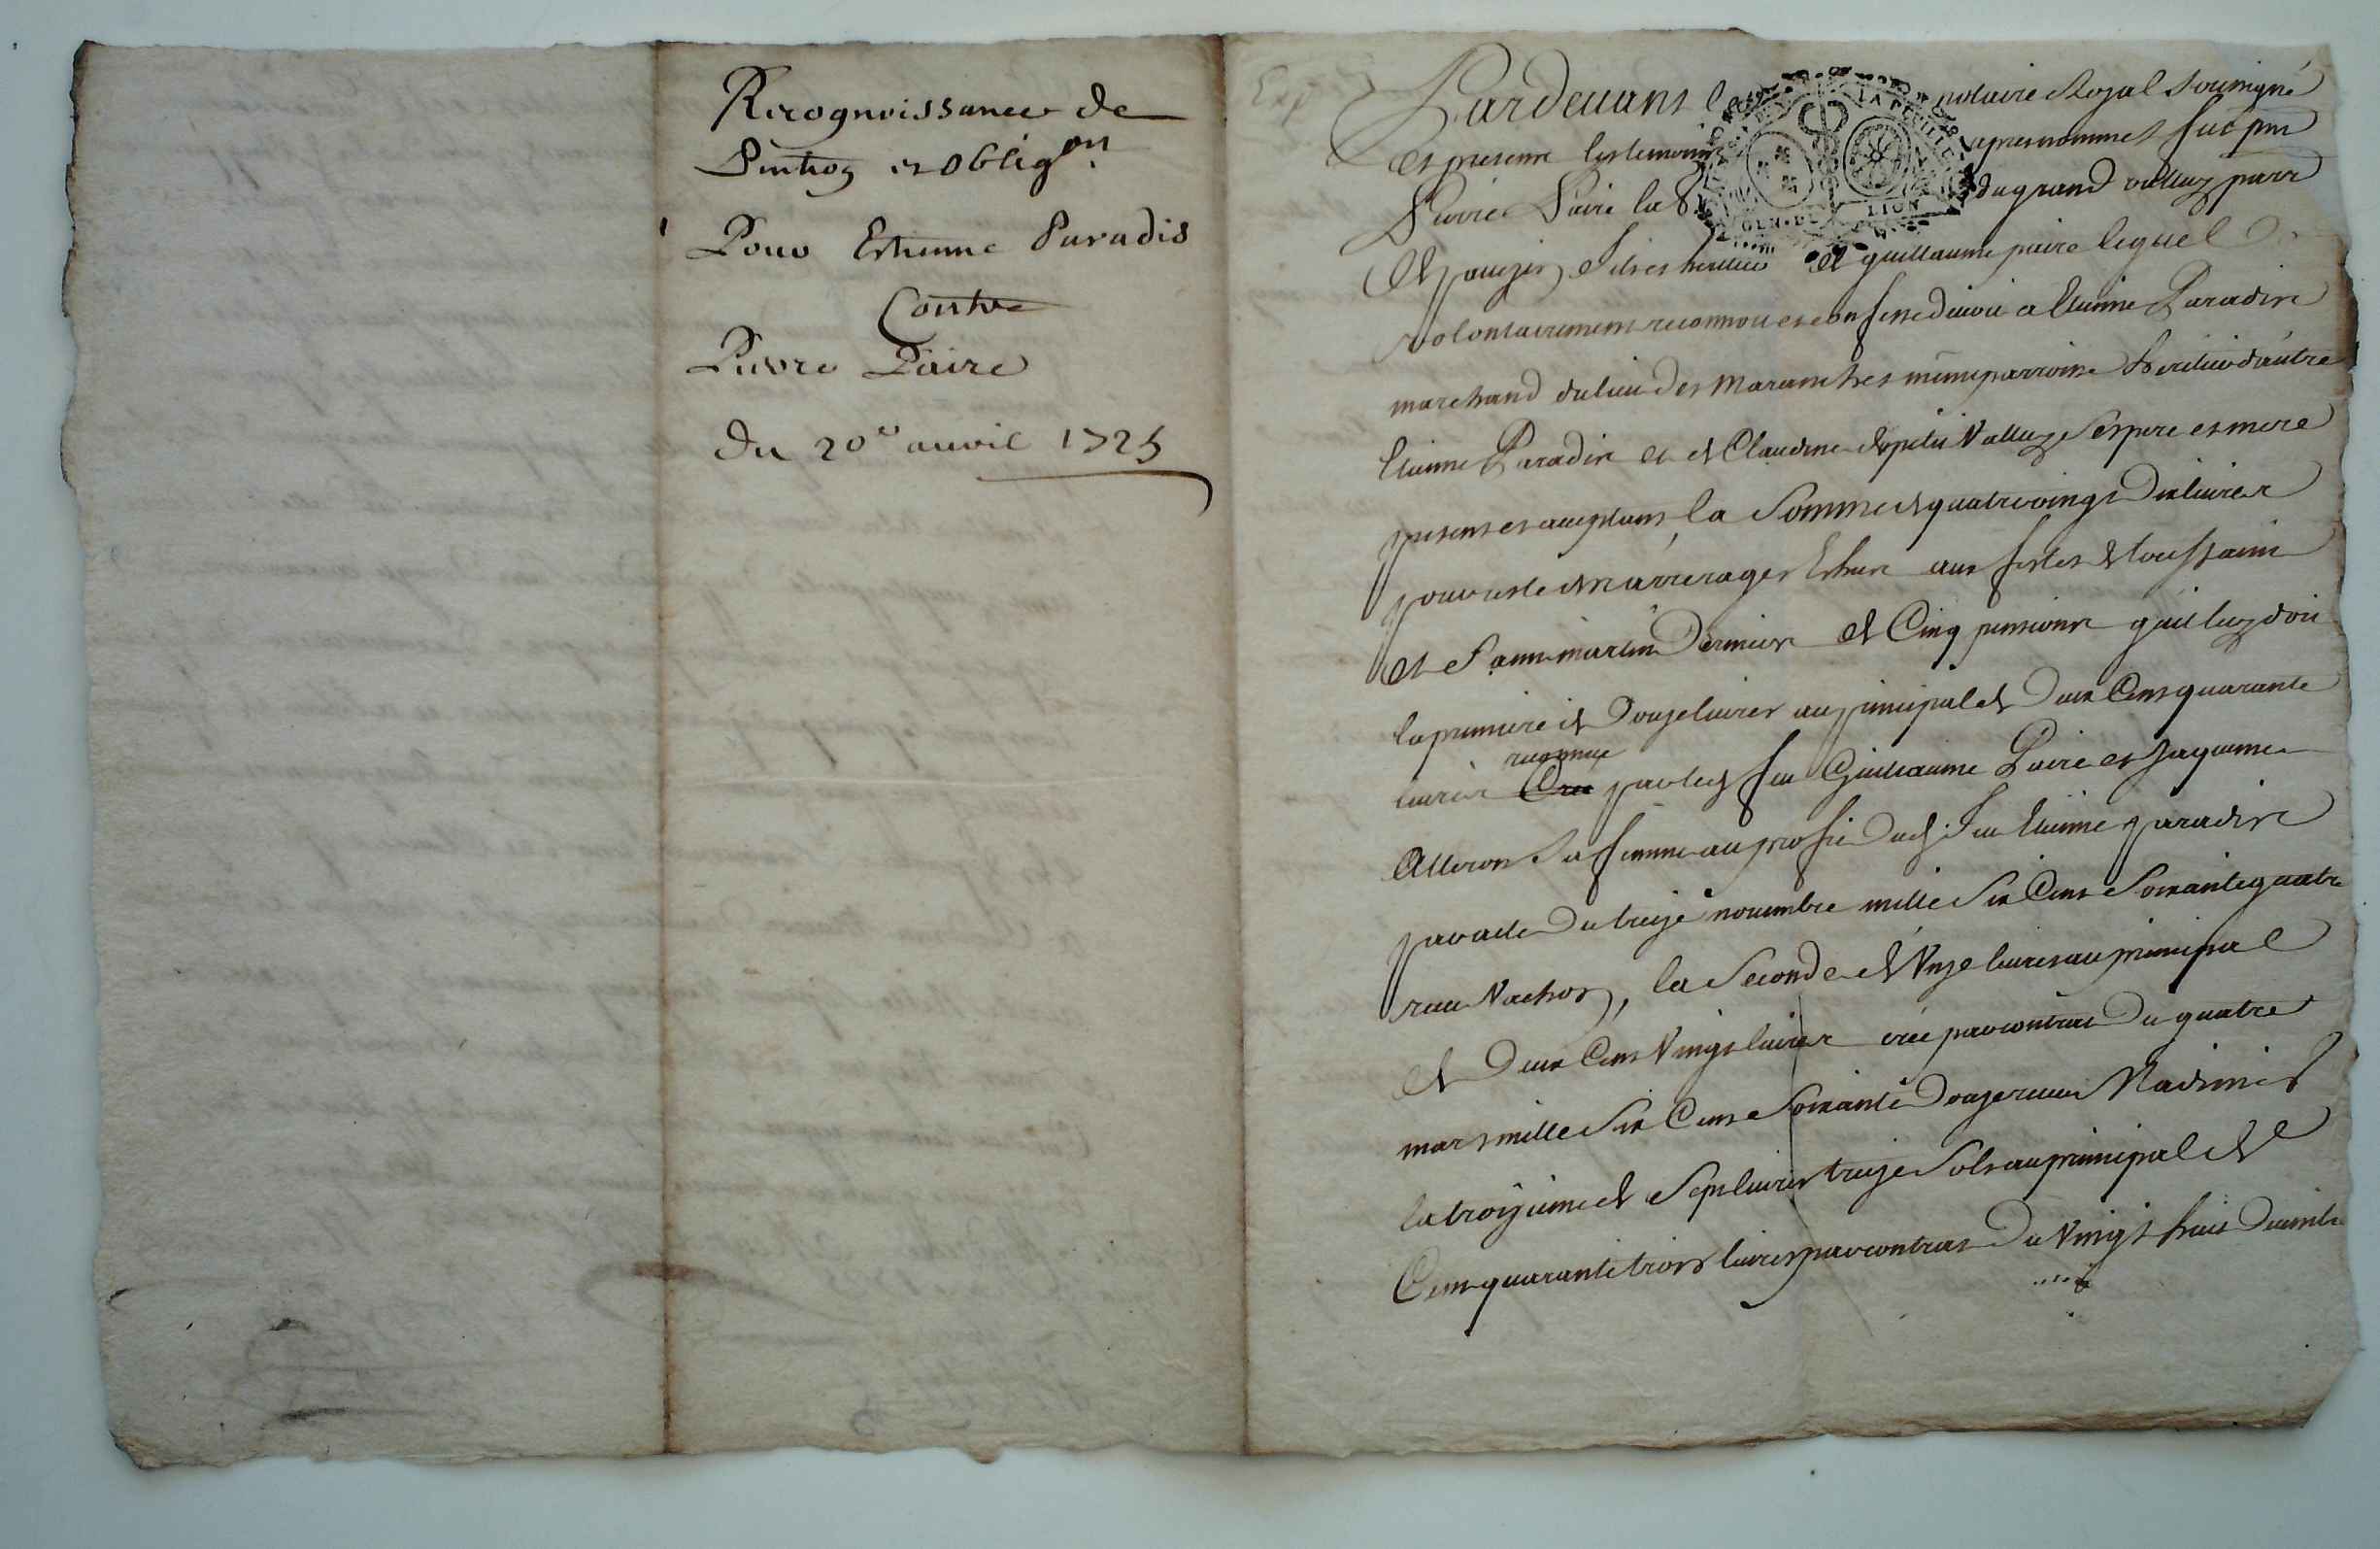 Recognoissance de
Pention et obligon
Pour Estienne Paradis
Contre
Pierre Paire
du 20e auril 1725
Pardeuant le notaire Royal soussigné
et presens les temoins apres nommes fut pnt
Pierre Paire lab du grand valluy parr
filz et heritier de guillaume paire lequel
volontairement reconnoit et confesse deuoir a Etienne Paradis
marchand du lieu des maranches meme parroisse heritier d'autre
Etienne Paradis et de Claudine de petit Valluy ses pere et mere
present et acceptant, la somme de quatre vingt dix liures
pour reste des arrerages Echus aux festes de toussaint
et saint martin dernier de Cinq pensions qu'il luy doit
la premiere de douze liures au principal de deux Cens quarante
reconnue
liures par led feu Guillaume Paire et
sa femme au profit dud. feu Etienne paradis
par acte du treize nouembre mille six Cens soixante quatre
receu Vachon, la seconde de Unze liures au principal
de deux Cens Vingt liures crée par contrat du quatre
mars mille six Cens soixante douze receu
la troisieme de sept liures treize sols au principal de
Cent quarante trois liures par contrat du Vingt huit
LA GEN. DE LION